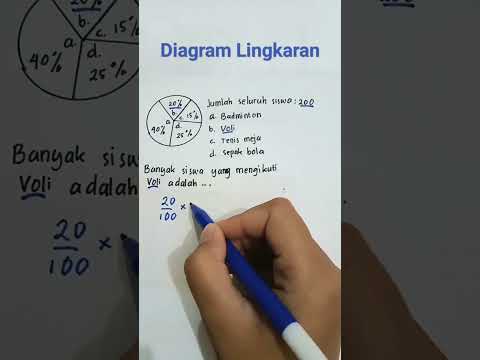 Diagram Lingkaran
b.
a.
c. 15%
40%
d.
25%
20%
b.
c. 15%
a.
d.
40%
25%
Jumlah seluruh siswa : 200
a. Badminton
b. Voli
c. Tenis meja
d. Sepak bola
Banyak siswa yang mengikuti
Voli adalah ...
20
100
×
Banyak sis
Voli adalah
20
100
×